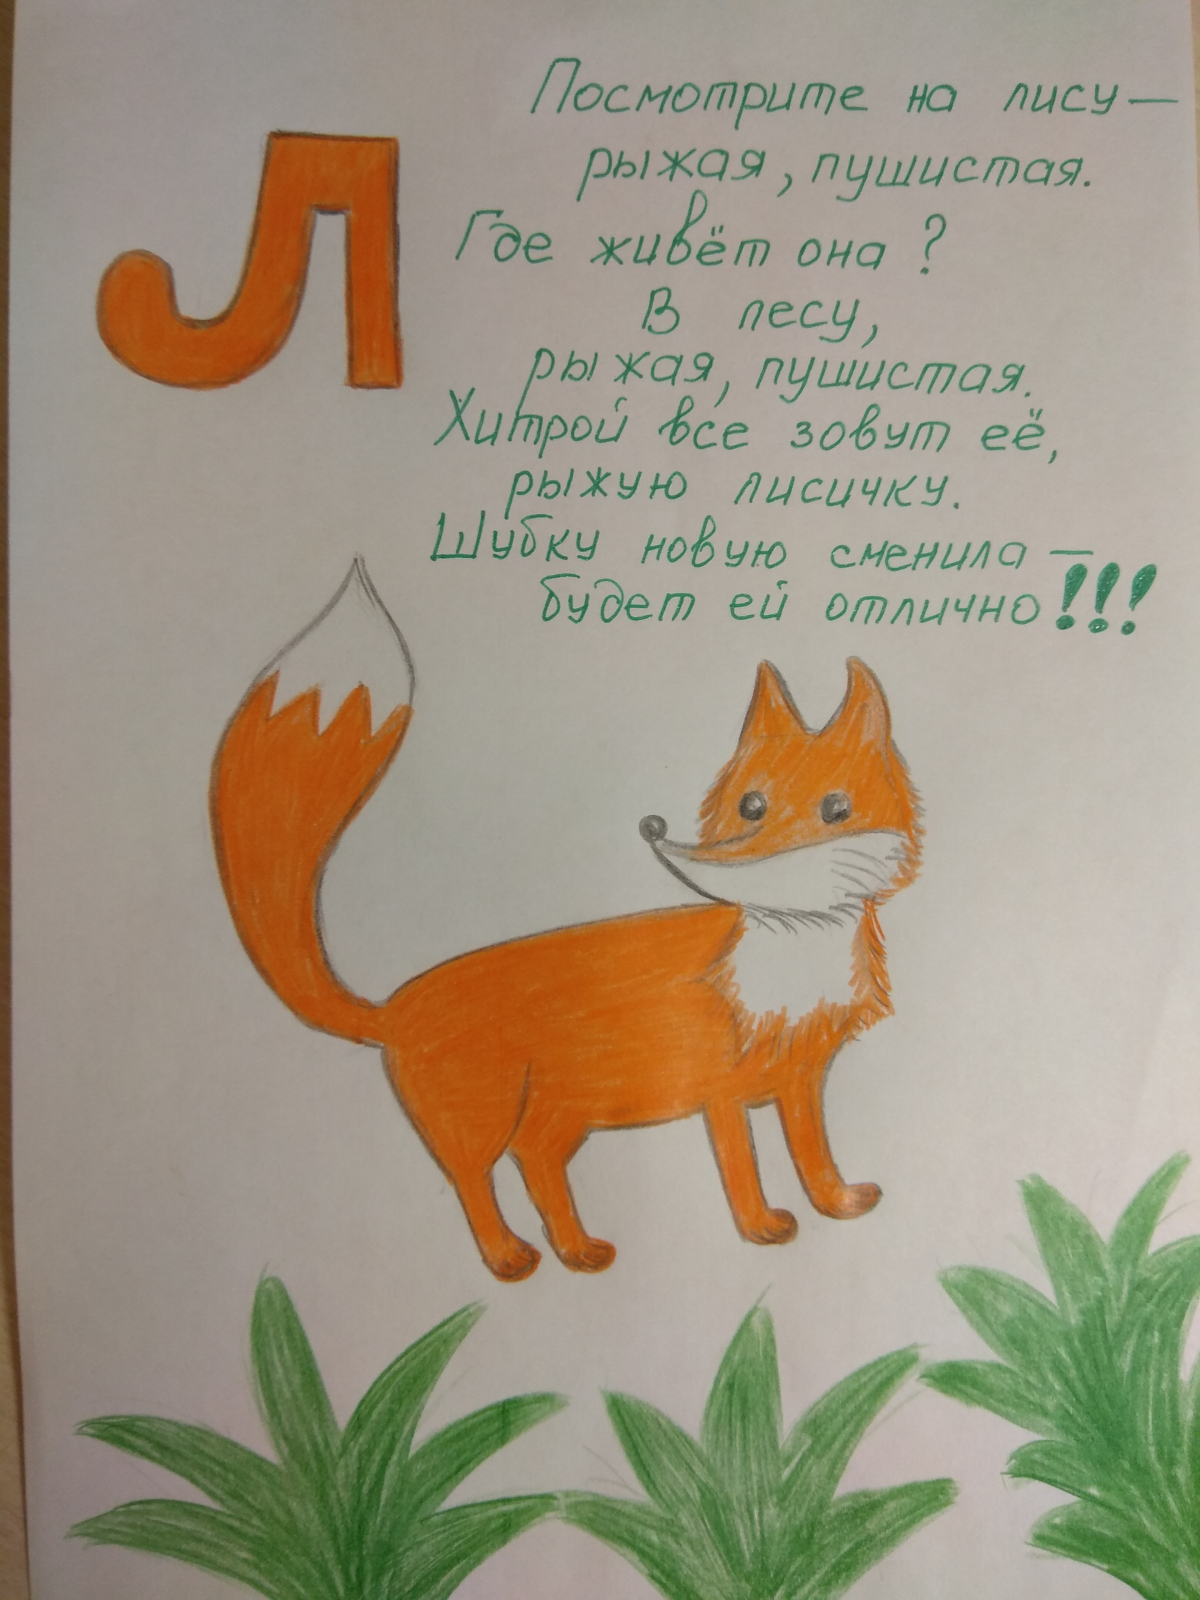 Л
Посмотрите на лису —
рыжая, пушистая.
Где живёт она ?
В лесу,
рыжая, пушистая.
Хитрой все зовут её,
рыжую лисичку.
Шубку новую сменила —
будет ей отлично!!!